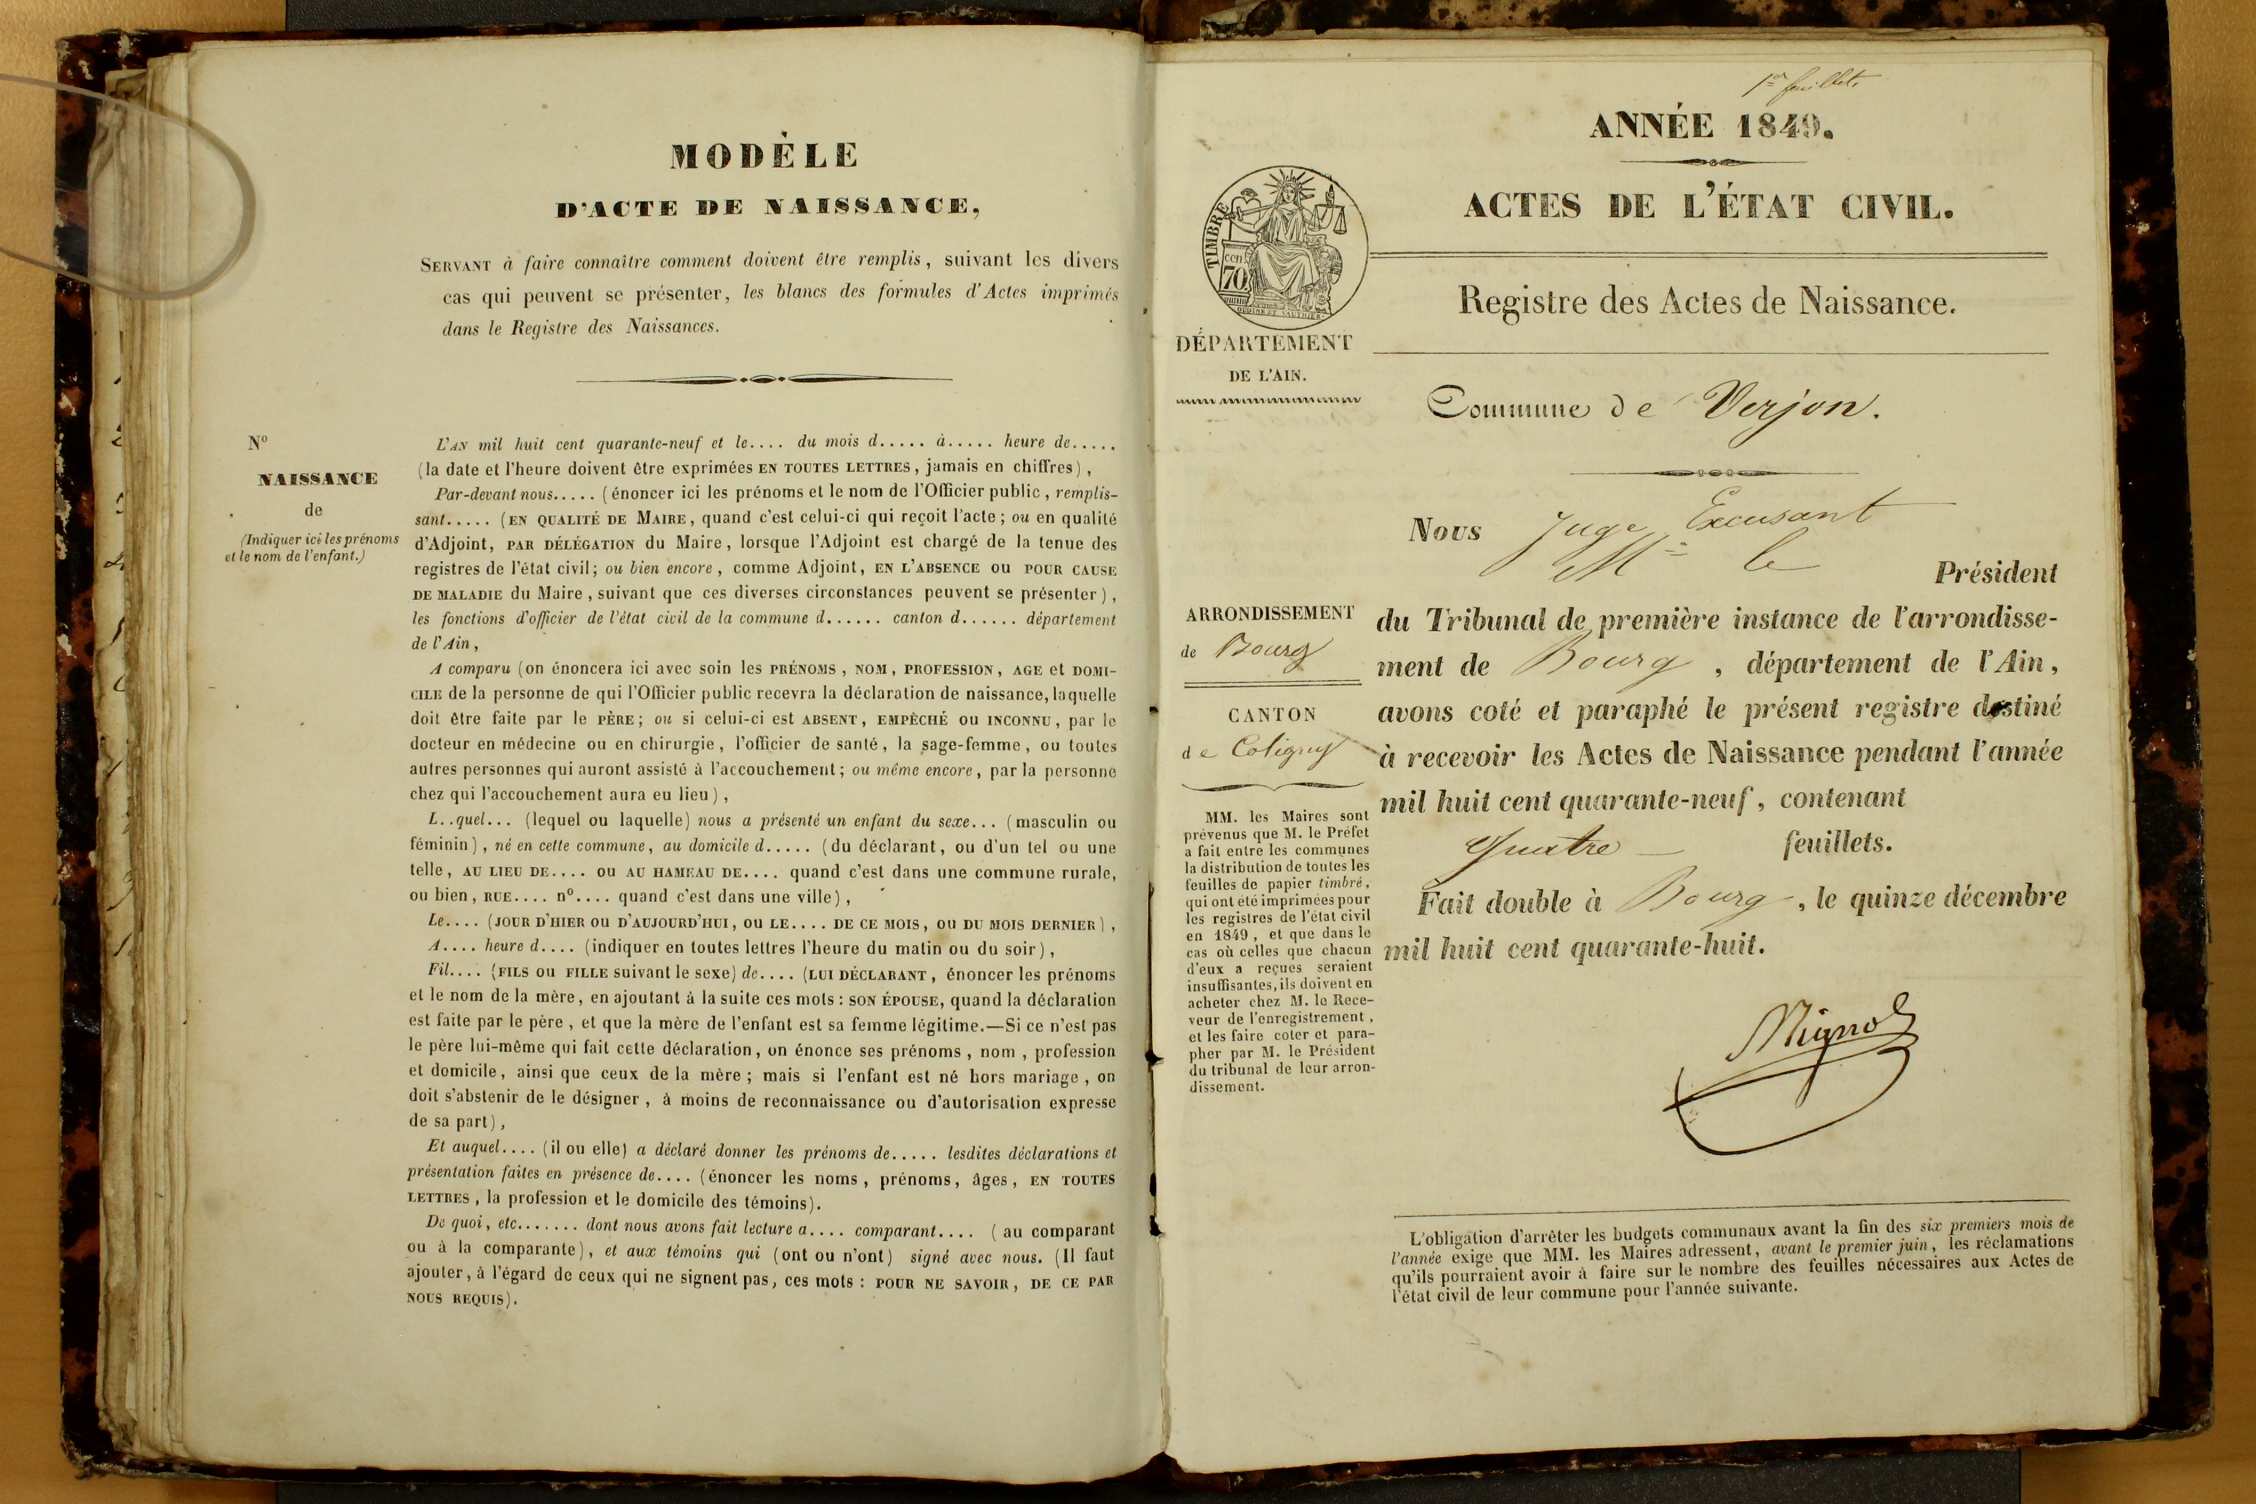 MODÈLE
D'ACTE DE NAISSANCE,
SERVANT à faire connaître comment doivent être remplis, suivant les divers
cas qui peuvent se présenter, les blancs des formules d'Actes imprimés
dans le Registre des Naissances.
N°
NAISSANCE
de
(Indiquer ici les prénoms
et le nom de l'enfant.)
L'AN mil huit cent quarante-neuf et le.... du mois d..... à..... heure de.....
(la date et l'heure doivent être exprimées EN TOUTES LETTRES, jamais en chiffres),
Par-devant nous..... (énoncer ici les prénoms et le nom de l'Officier public, remplis-
sant..... (EN QUALITÉ DE MAIRE, quand c'est celui-ci qui reçoit l'acte; ou en qualité
d'Adjoint, PAR DÉLÉGATION du Maire, lorsque l'Adjoint est chargé de la tenue des
registres de l'état civil; ou bien encore, comme Adjoint, EN L'ABSENCE OU POUR CAUSE
DE MALADIE du Maire, suivant que ces diverses circonstances peuvent se présenter),
les fonctions d'officier de l'état civil de la commune d...... canton d...... département
de l'Ain,
A comparu (on énoncera ici avec soin les PRÉNOMS, NOM, PROFESSION, AGE et DOMI-
CILE de la personne de qui l'Officier public recevra la déclaration de naissance, laquelle
doit être faite par le PÈRE; ou si celui-ci est ABSENT, EMPÊCHÉ OU INCONNU, par le
docteur en médecine ou en chirurgie, l'officier de santé, la sage-femme, ou toutes
autres personnes qui auront assisté à l'accouchement; ou même encore, par la personne
chez qui l'accouchement aura eu lieu),
L..quel... (lequel ou laquelle) nous a présenté un enfant du sexe... (masculin ou
féminin), né en cette commune, au domicile d..... (du déclarant, ou d'un tel ou une
telle, AU LIEU DE.... OU AU HAMEAU DE.... quand c'est dans une commune rurale,
ou bien, RUE.... n°.... quand c'est dans une ville),
Le.... (JOUR D'HIER OU D'AUJOURD'HUI, OU LE.... DE CE MOIS, OU DU MOIS DERNIER),
A.... heure d.... (indiquer en toutes lettres l'heure du matin ou du soir),
Fil.... (FILS OU FILLE suivant le sexe) de.... (LUI DÉCLARANT, énoncer les prénoms
et le nom de la mère, en ajoutant à la suite ces mots: SON ÉPOUSE, quand la déclaration
est faite par le père, et que la mère de l'enfant est sa femme légitime.—Si ce n'est pas
le père lui-même qui fait cette déclaration, on énonce ses prénoms, nom, profession
et domicile, ainsi que ceux de la mère; mais si l'enfant est né hors mariage, on
doit s'abstenir de le désigner, à moins de reconnaissance ou d'autorisation expresse
de sa part),
Et auquel.... (il ou elle) a déclaré donner les prénoms de..... lesdites déclarations et
présentation faites en présence de.... (énoncer les noms, prénoms, âges, EN TOUTES
LETTRES, la profession et le domicile des témoins).
De quoi, etc....... dont nous avons fait lecture a.... comparant.... (au comparant
ou à la comparante), et aux témoins qui (ont ou n'ont) signé avec nous. (Il faut
ajouter, à l'égard de ceux qui ne signent pas, ces mots: POUR NE SAVOIR, DE CE PAR
NOUS REQUIS).
1er feuillet.
ANNÉE 1849.
ACTES DE L'ÉTAT CIVIL.
TIMBRE
cen
70
Registre des Actes de Naissance.
DÉPARTEMENT
DE L'AIN.
Commune de Verjon.
Nous Juge Excusant
Mr le
Président
du Tribunal de première instance de l'arrondisse-
ment de Bourg, département de l'Ain,
avons coté et paraphé le présent registre destiné
à recevoir les Actes de Naissance pendant l'année
mil huit cent quarante-neuf, contenant
Quatre — feuillets.
Fait double à Bourg, le quinze décembre
mil huit cent quarante-huit.
ARRONDISSEMENT
de Bourg
CANTON
de Coligny
MM. les Maires sont
prévenus que M. le Préfet
a fait entre les communes
la distribution de toutes les
feuilles de papier timbré,
qui ont été imprimées pour
les registres de l'état civil
en 1849, et que dans le
cas où celles que chacun
d'eux a reçues seraient
insuffisantes, ils doivent en
acheter chez M. le Rece-
veur de l'enregistrement,
et les faire coter et para-
pher par M. le Président
du tribunal de leur arron-
dissement.
L'obligation d'arrêter les budgets communaux avant la fin des six premiers mois de
l'année exige que MM. les Maires adressent, avant le premier juin, les réclamations
qu'ils pourraient avoir à faire sur le nombre des feuilles nécessaires aux Actes de
l'état civil de leur commune pour l'année suivante.